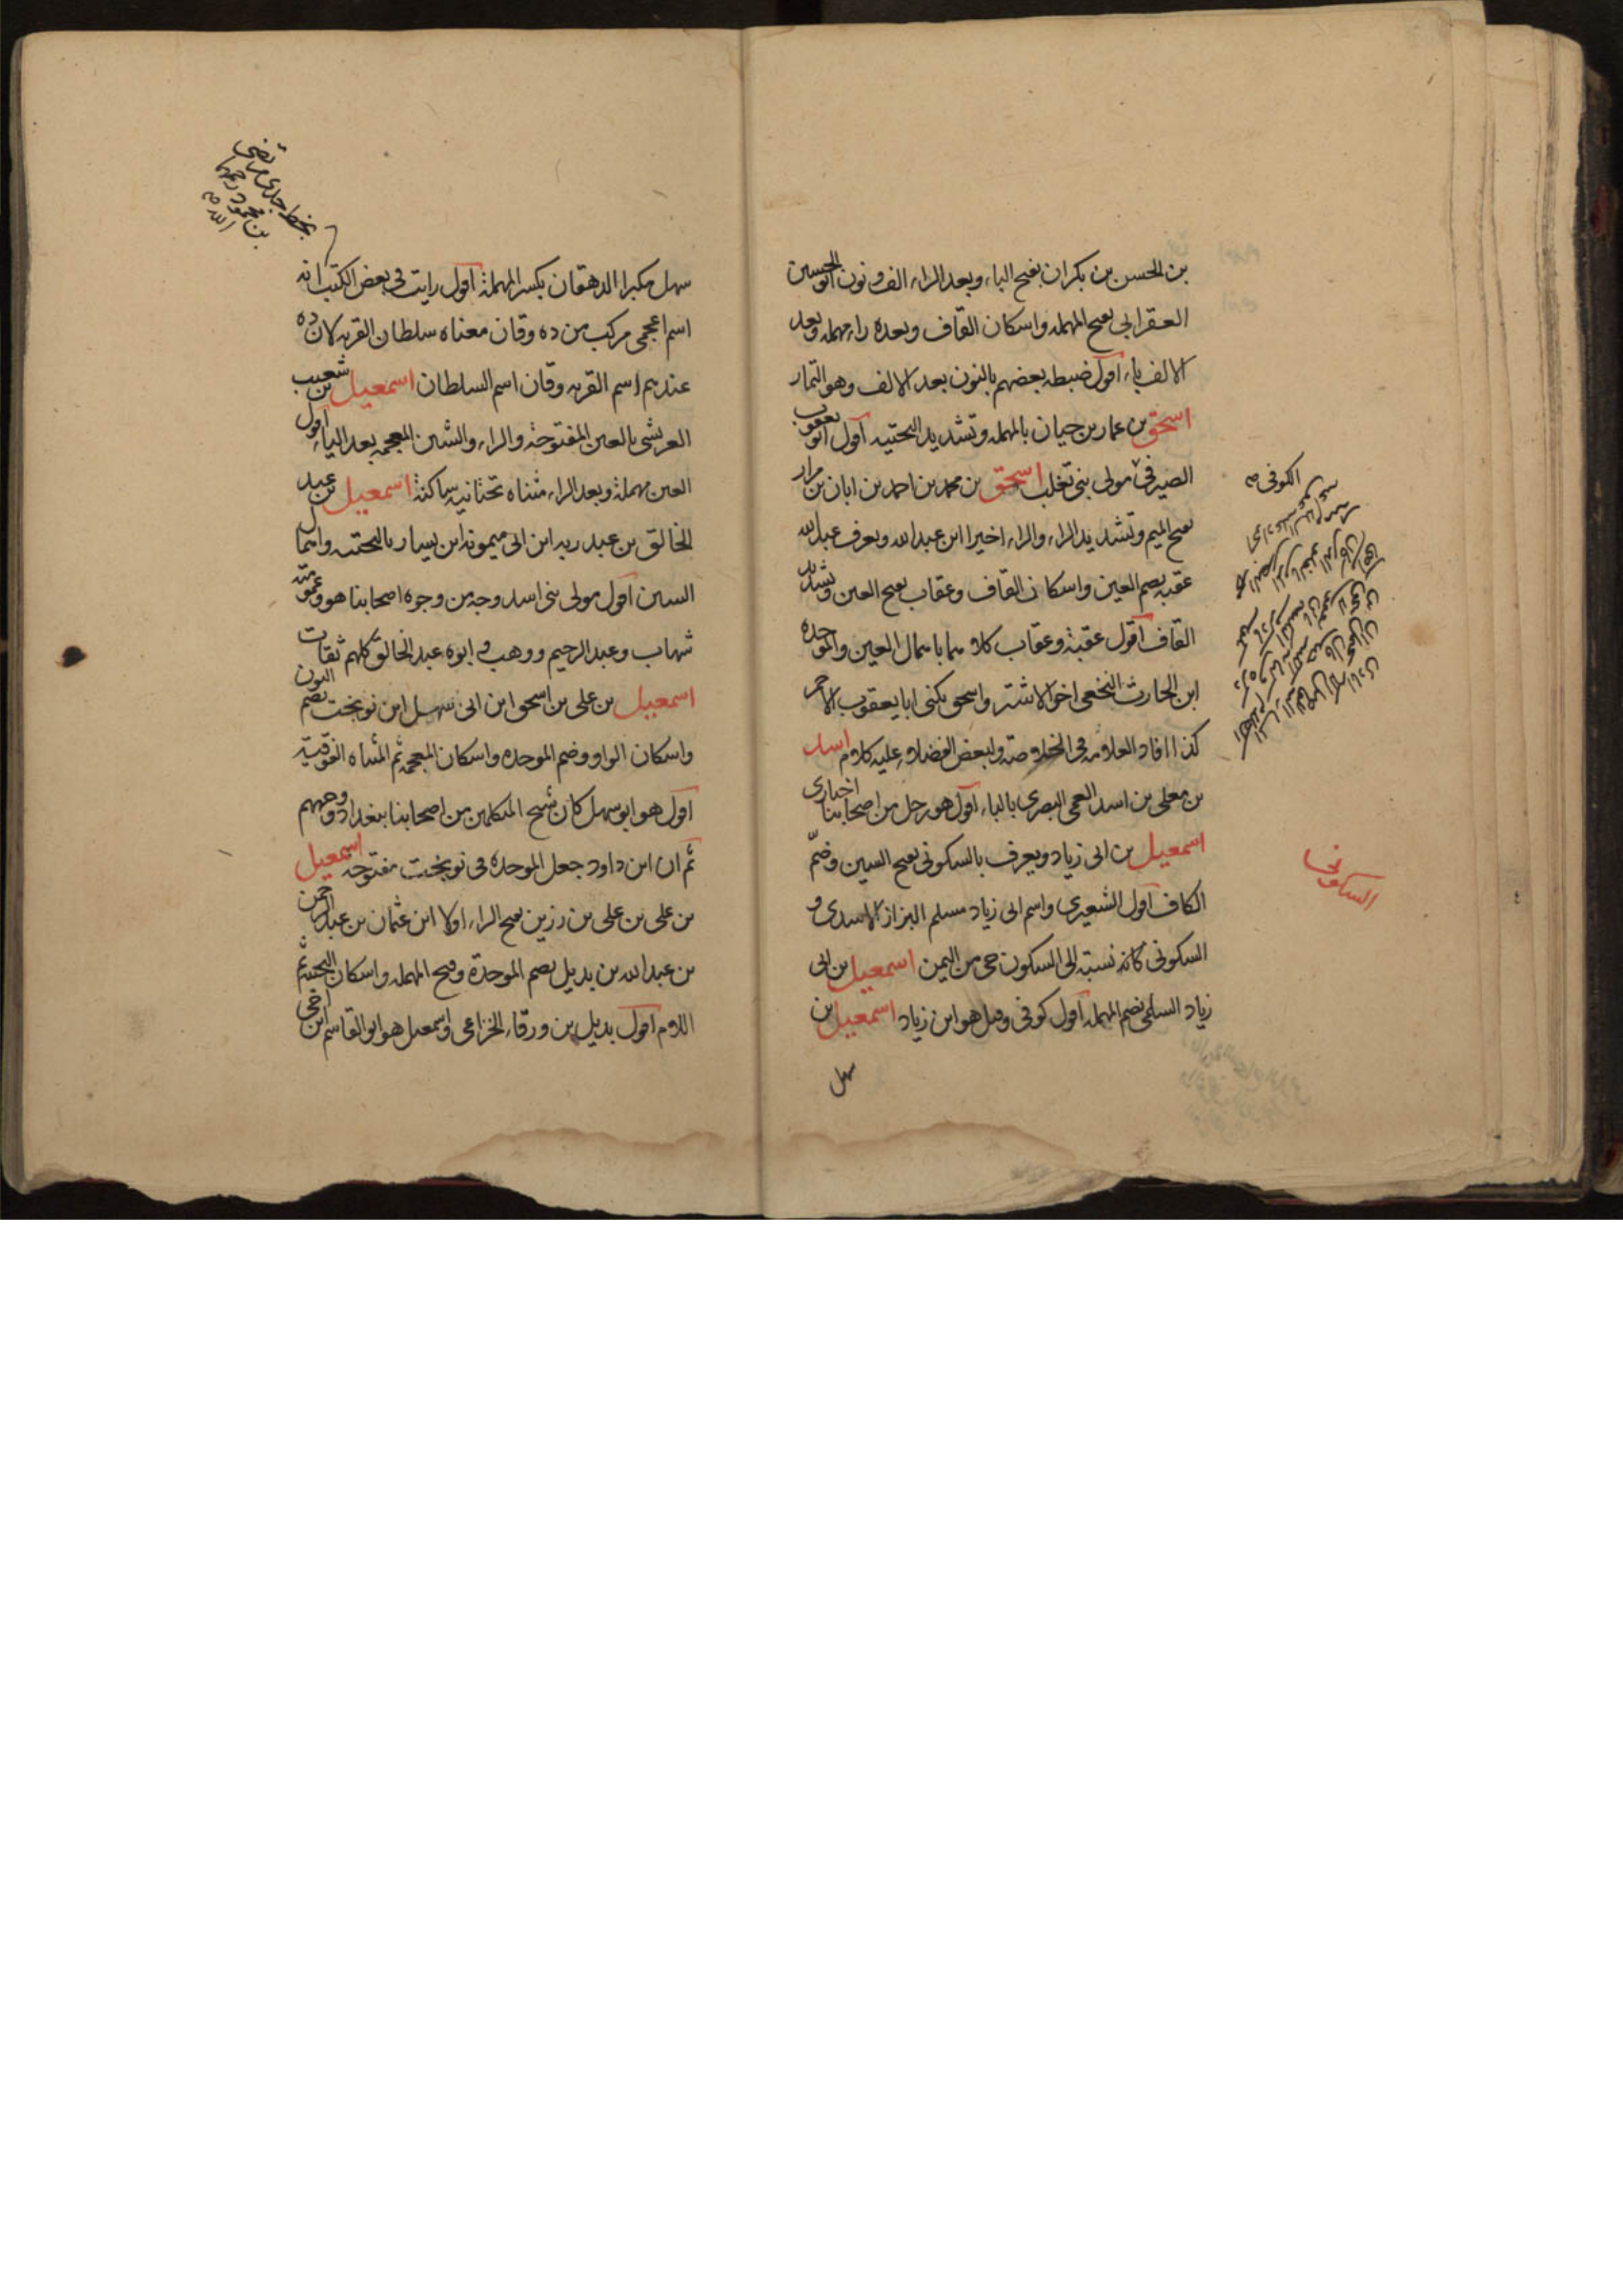 بن الحسن بن بكران بفتح الباء وبعد الراء الف ونون ابو الحسين
العقرابى بفتح المهمله واسكان القاف وبعده راء مهمله وبعد
الالف باء اقول ضبطه بعضهم بالنون بعد الالف وهو التمار
اسحق بن عمار بن حيان بالمهمله وتشديد التحتيه اقول ابو يعقوب
الصيرفى مولى بنى تغلب اسحق بن محمد بن احمد بن ابان بن مرار
بفتح الميم وتشديد الراء والراء اخيرا ابن عبد الله ويعرف عبد الله
عقبه بضم العين واسكان القاف وعقاب بفتح العين وتشديد
القاف اقول عقبة وعقاب كلاهما باهمال العين والموحده
ابن الحارث النخعى اخو الاشتر واسحق يكنى ابا يعقوب الاحمر
كذا افاد العلامه فى الخلاصة ولبعض الفضلاء عليه كلام اسد
بن معلى بن اسد العمى البصرى بالباء اقول هو رجل من اصحابنا اخبارى
اسمعيل بن ابى زياد ويعرف بالسكونى بفتح السين وضمّ
الكاف اقول الشعيرى واسم ابى زياد مسلم البزاز الاسدى و
السكونى كانه نسبته الى السكون حى من اليمن اسمعيل بن ابى
زياد السلمى بضم المهمله اقول كوفى وقيل هو ابن زياد اسمعيل بن
سهل
الكوفى
السكونى
بخط جدى مرتضى
بن محمود رحمهما
الله
سهل مكبرا الدهقان بكسر المهملة اقول رايت فى بعض الكتب انه
اسم اعجمى مركب من ده وقان معناه سلطان القريه لان ده
عندهم اسم القريه وقان اسم السلطان اسمعيل بن شعيب
العريشى بالعين المفتوحة والراء والشين المعجمه بعد الياء اقول
العين مهملة وبعد الراء مثناه تحتانيه ساكنة اسمعيل بن عبد
الخالق بن عبد ربه ابن ابى ميمونه ابن يسار بالتحتيه واهمال
السين اقول مولى بنى اسد وجه من وجوه اصحابنا هو وعمومته
شهاب وعبد الرحيم ووهب و ابوه عبد الخالق كلهم ثقات
اسمعيل بن على بن اسحق ابن ابى سهل ابن نوبخت بضم النون
واسكان الواو وضم الموحده واسكان المعجمه ثم المثناه الفوقيّة
اقول هو ابو سهل كان شيخ المتكلمين من اصحابنا ببغداد ووجههم
ثم ان ابن داود جعل الموحدة فى نوبخت مفتوحه اسمعيل
بن على بن على بن رزين بفتح الراء اولا ابن عثمان بن عبد الرحمن
بن عبد الله بن بديل بضم الموحدة وفتح المهمله واسكان التحتية ثم
اللام اقول بديل بن ورقاء الخزاعى واسمعيل هو ابو القاسم ابن اخى